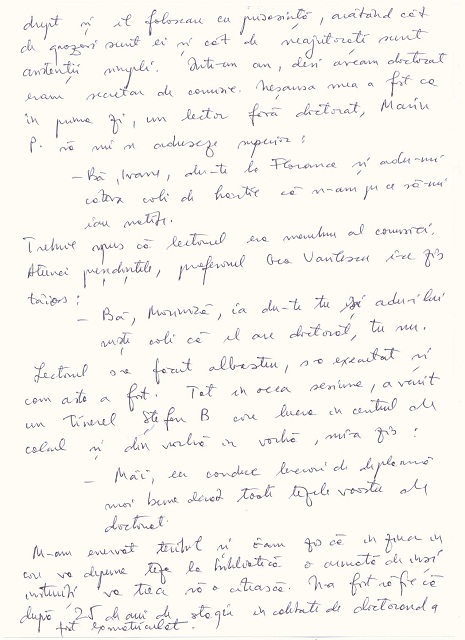 drept și îl foloseau cu prisosință, arătând cât
de grozavi sunt ei și cât de neajutorați sunt
asistenții simpli. Într-un an, deși aveam doctorat
eram secretar de comisie. Neșansa mea a fost ca
în prima zi, un lector fără doctorat, Marin
P. să mi se adreseze superior:
- Bă, Ivane, du-te la Floranca și adu-mi
câteva coli de hârtie că n-am pe ce să-mi
iau notițe.
Trebuie spus că lectorul era membru al comisiei.
Atunci președintele, profesorul Gea Vantescu i-a zis
tăios:
- Bă, ia du-te tu și adu-i lui
niște coli că el are doctorat, tu nu.
Lectorul s-a făcut albastru, s-a executat și
cam asta a fost. Tot în acea sesiune, a venit
un tinerel Ștefan B care lucra în centrul de
calcul și din vorbă în vorbă, mi-a zis:
- Măi, eu conduc lucrări de diplomă
mai bune decât toate tezele voastre de
doctorat.
M-am enervat teribil și i-am zis că în ziua în
care va depune teza la bibliotecă o armată de inși
instruiți va trece să o citească. N-a fost să fie că
după 25 de ani de stagiu în calitate de doctorand a
fost exmatriculat.